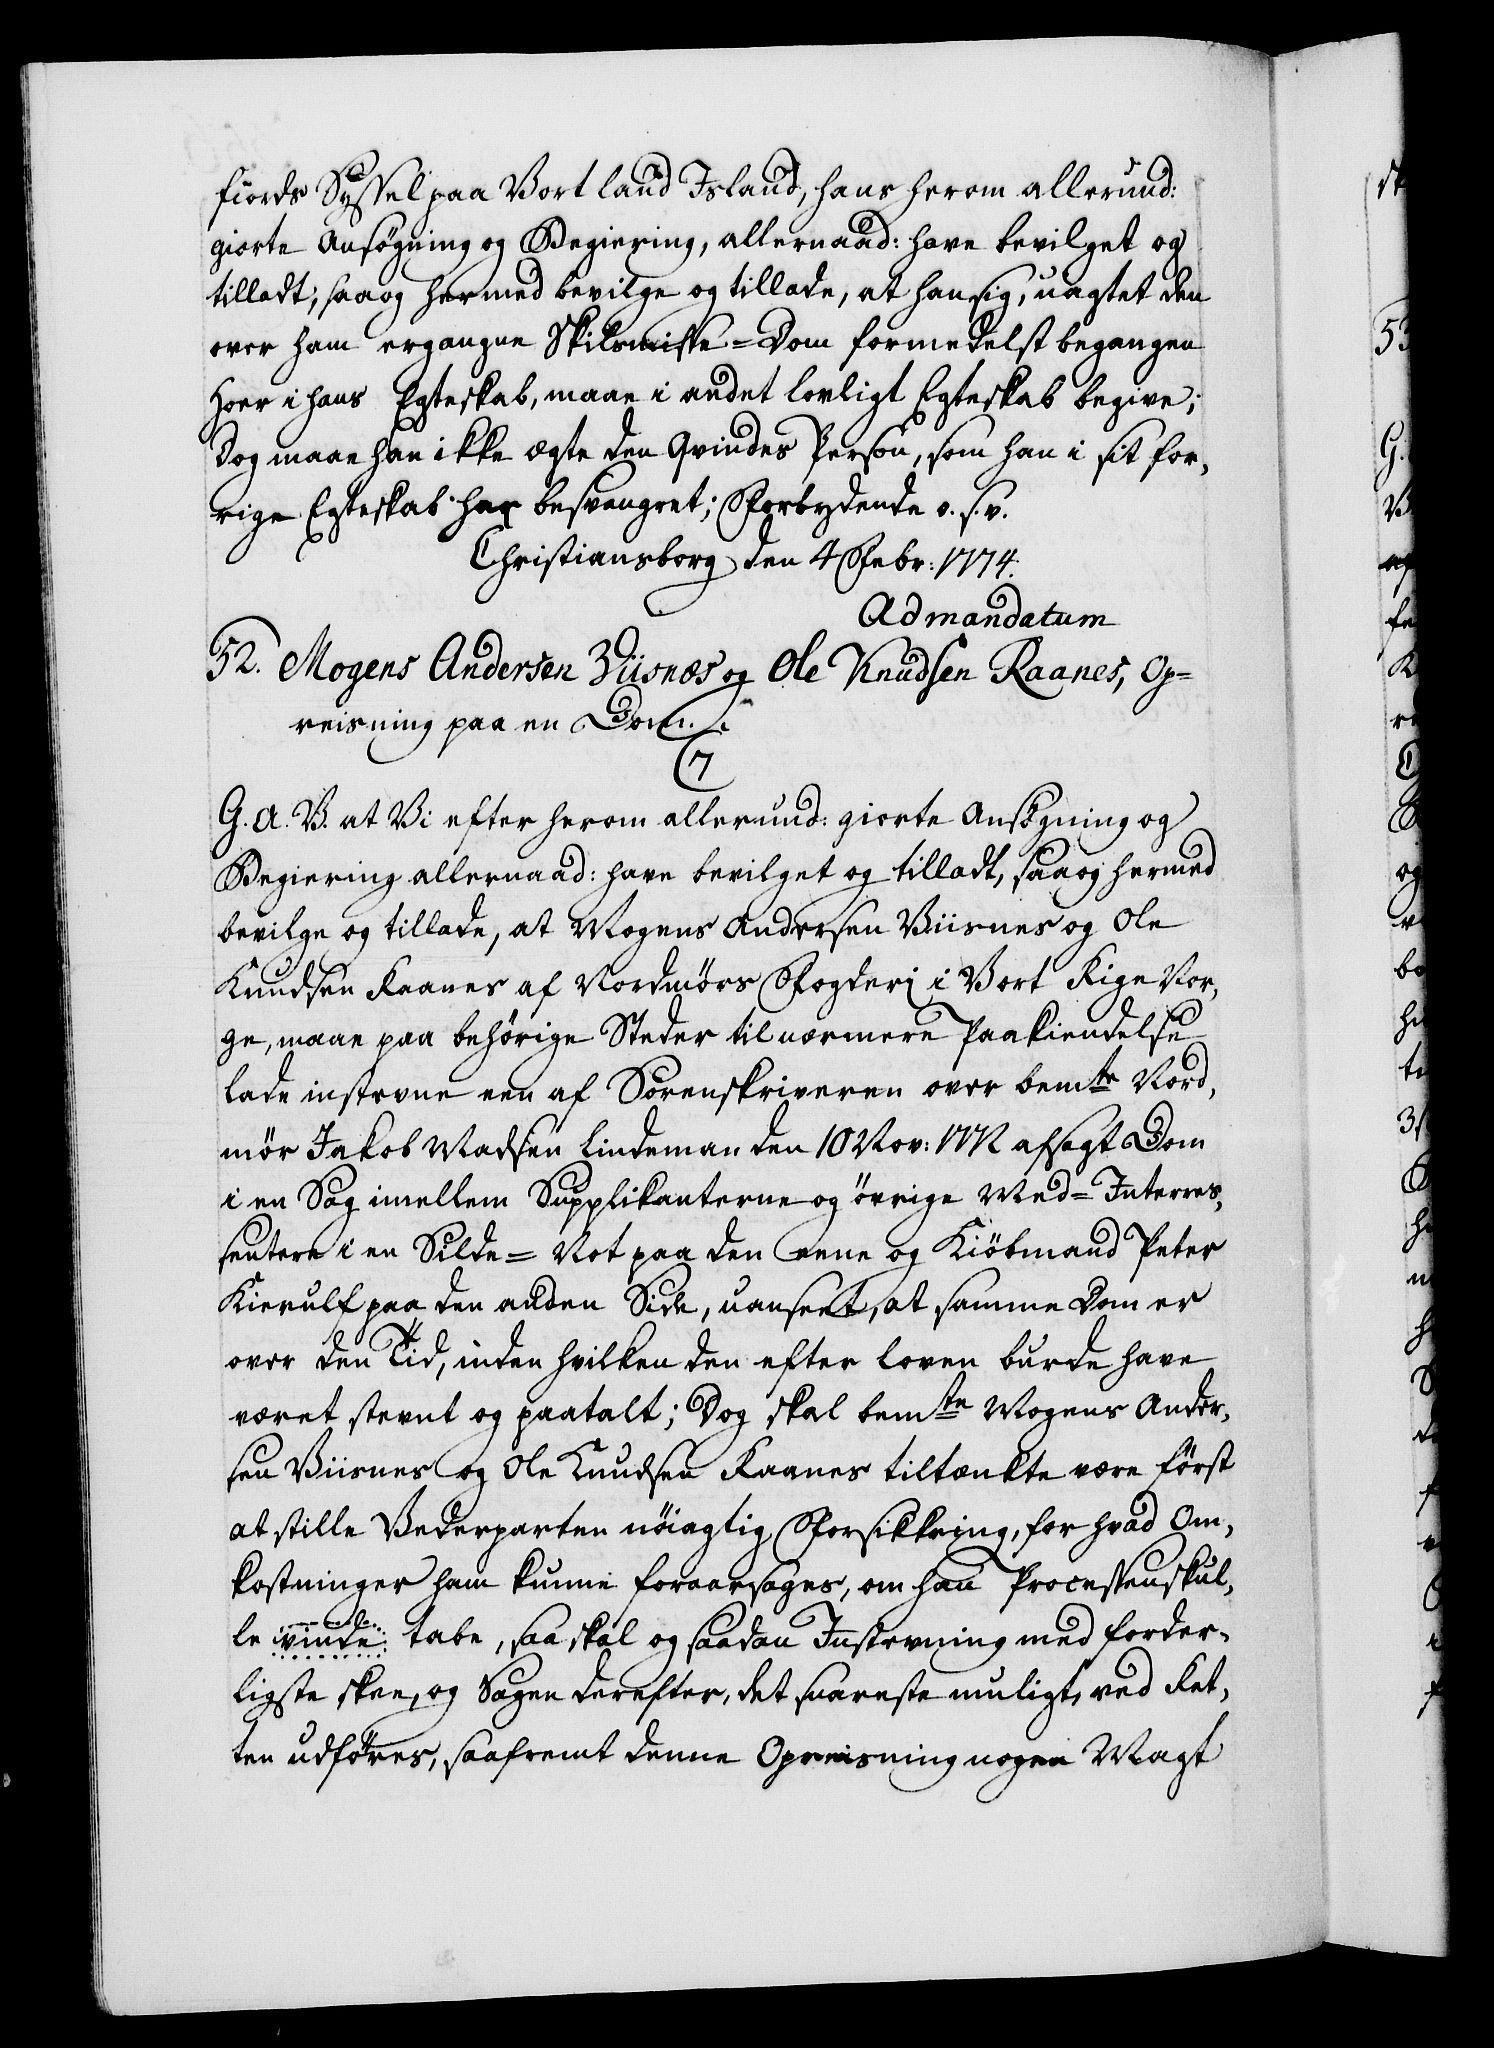 fiords Syssel paa Vort land Island, hans herom allerund:
giorte Ansøgning og Begiering, allernaad: have bevilget og
tilladt, saa og hermed bevilge og tillade, at han sig, uagtet den
over ham ergangne Skilsmisse=Dom formedelst begangen
Hoer i hans Egteskab, maae i andet lovligt Egteskab begive;
Dog maae han ikke ægte den Qvindes Person, som han i sit for,
rige Egteskab har besvangret; Forbydende o. s. v.
Christiansborg den 4 Febr: 1774.
Ad mandatum
52. Mogens Andersen Viisnæs og Ole Knudsen Raanes, Op=
reisning paa en Dom.
7
G. A. V. at Vi efter herom allerund: giorte Ansøgning og
Begiering allernaad: have bevilget og tilladt, saa og hermed
bevilge og tillade, at Mogens Andersen Viisnes og Ole
Knudsen Raanes af Nordmørs Fogderi i Vort Rige Nor,
ge, maae paa behørige Steder til nærmere Paakiendelse
lade instevne een af Sorenskriveren over bemte Nord,
mør Jakob Madsen Lindeman den 10 Nov: 1772 afsagt Dom
i en Sag imellem Supplikanterne og øvrige Med=Interres,
sentere i en Silde=Not paa den eene og Kiøbmand Peter
Kierulf paa den anden Side, uanseet, at samme Dom er
over den Tid, inden hvilken den efter Loven burde have
været stevnt og paatalt; Dog skal bemte Mogens Ander,
sen Viisnes og Ole Knudsen Raanes tiltænkte være først
at stille Vederparten nöiagtig Forsikkring, for hvad Om,
kostninger ham kunne foraarsages, om han Processen skul,
le vinde tabe, saa skal og saadan Instevning med forder,
ligste skee, og Sagen derefter, det snareste muligt, ved Ret,
ten udføres, saafremt denne Opreisning nogen Magt